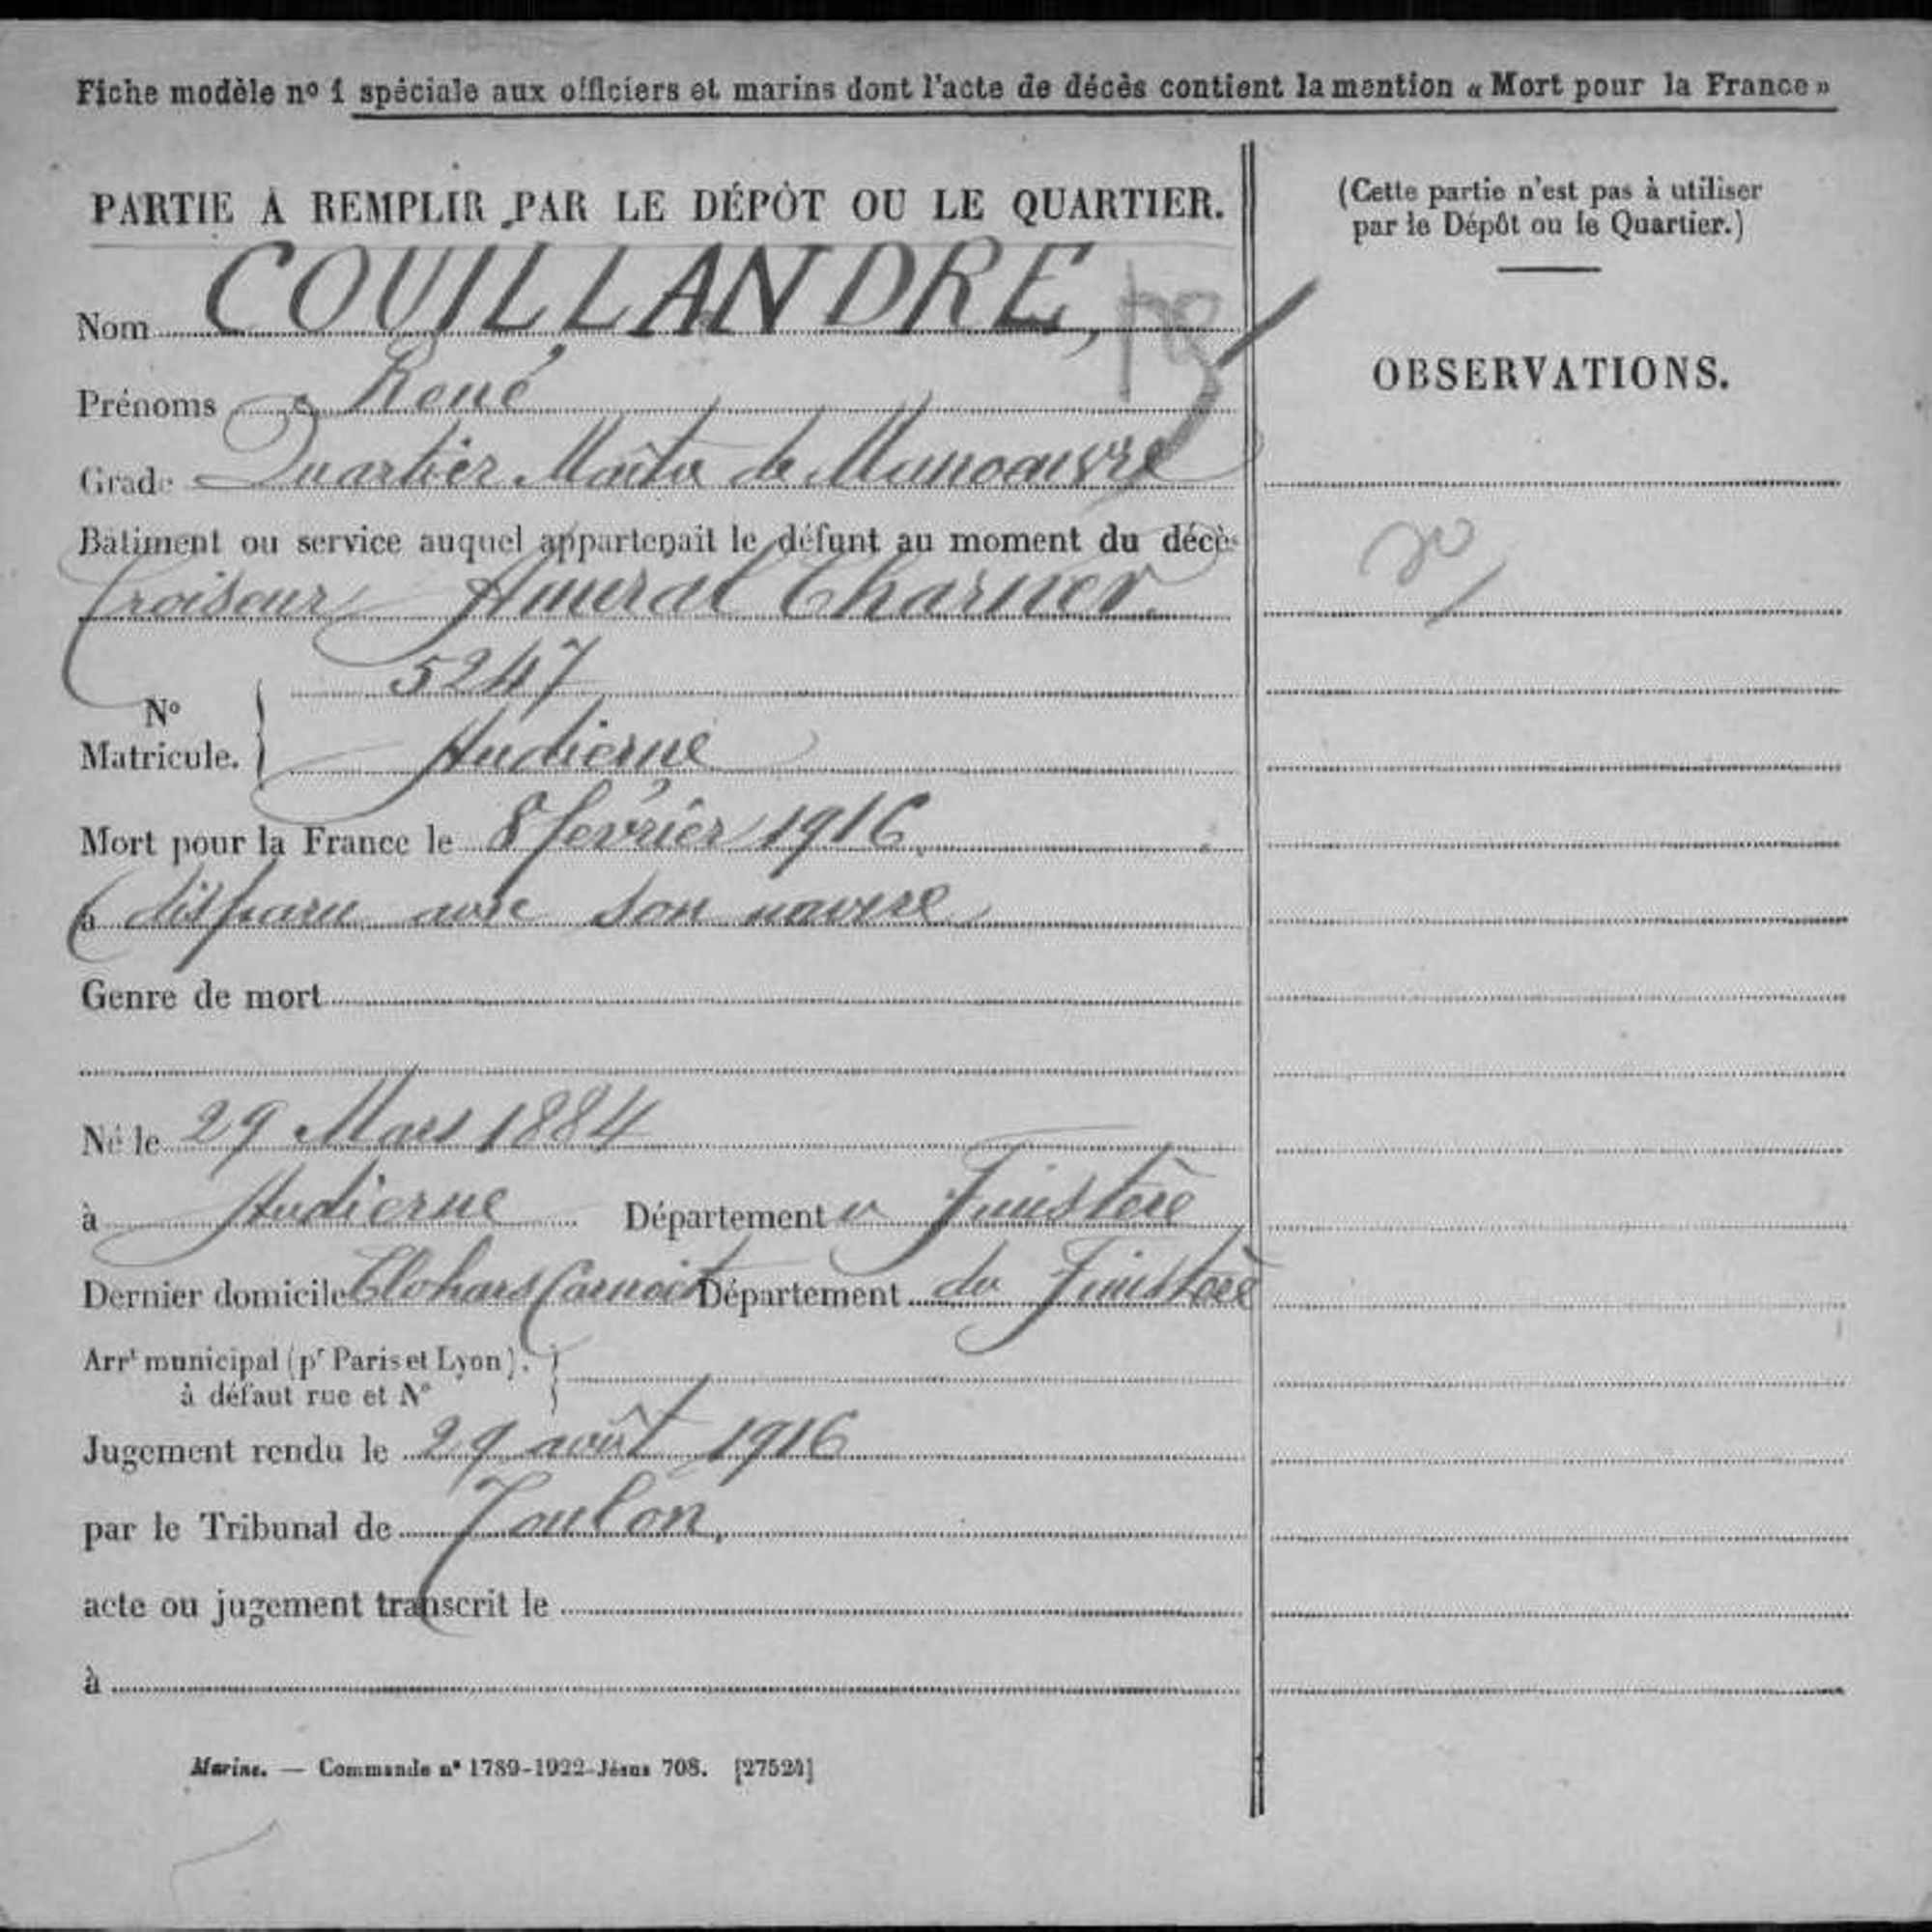 Fiche modèle nº 1 spéciale aux officiers et marins dont l'acte de décès contient la mention « Mort pour la France »
PARTIE À REMPLIR PAR LE DÉPÔT OU LE QUARTIER.
Nom COUILLANDRE,
Prénoms René
Grade Quartier Maître de Manoeuvre
Bâtiment ou service auquel appartenait le défunt au moment du décès
Croiseur Amiral Charner.
5247
Nº Matricule.
Audierne
Mort pour la France le 8 février 1916.
à disparu avec son navire
Genre de mort
Né le 29 Mars 1884
à Audierne Département Finistère
Dernier domicile Clohars Carnoët Département du Finistère
Arrt municipal (pr Paris et Lyon).
à défaut rue et Nº
Jugement rendu le 29 août 1916
par le Tribunal de Toulon,
acte ou jugement transcrit le
à
Marine. — Commande nº 1789-1922 Jésus 708. [27524]
(Cette partie n'est pas à utiliser
par le Dépôt ou le Quartier.)
OBSERVATIONS.